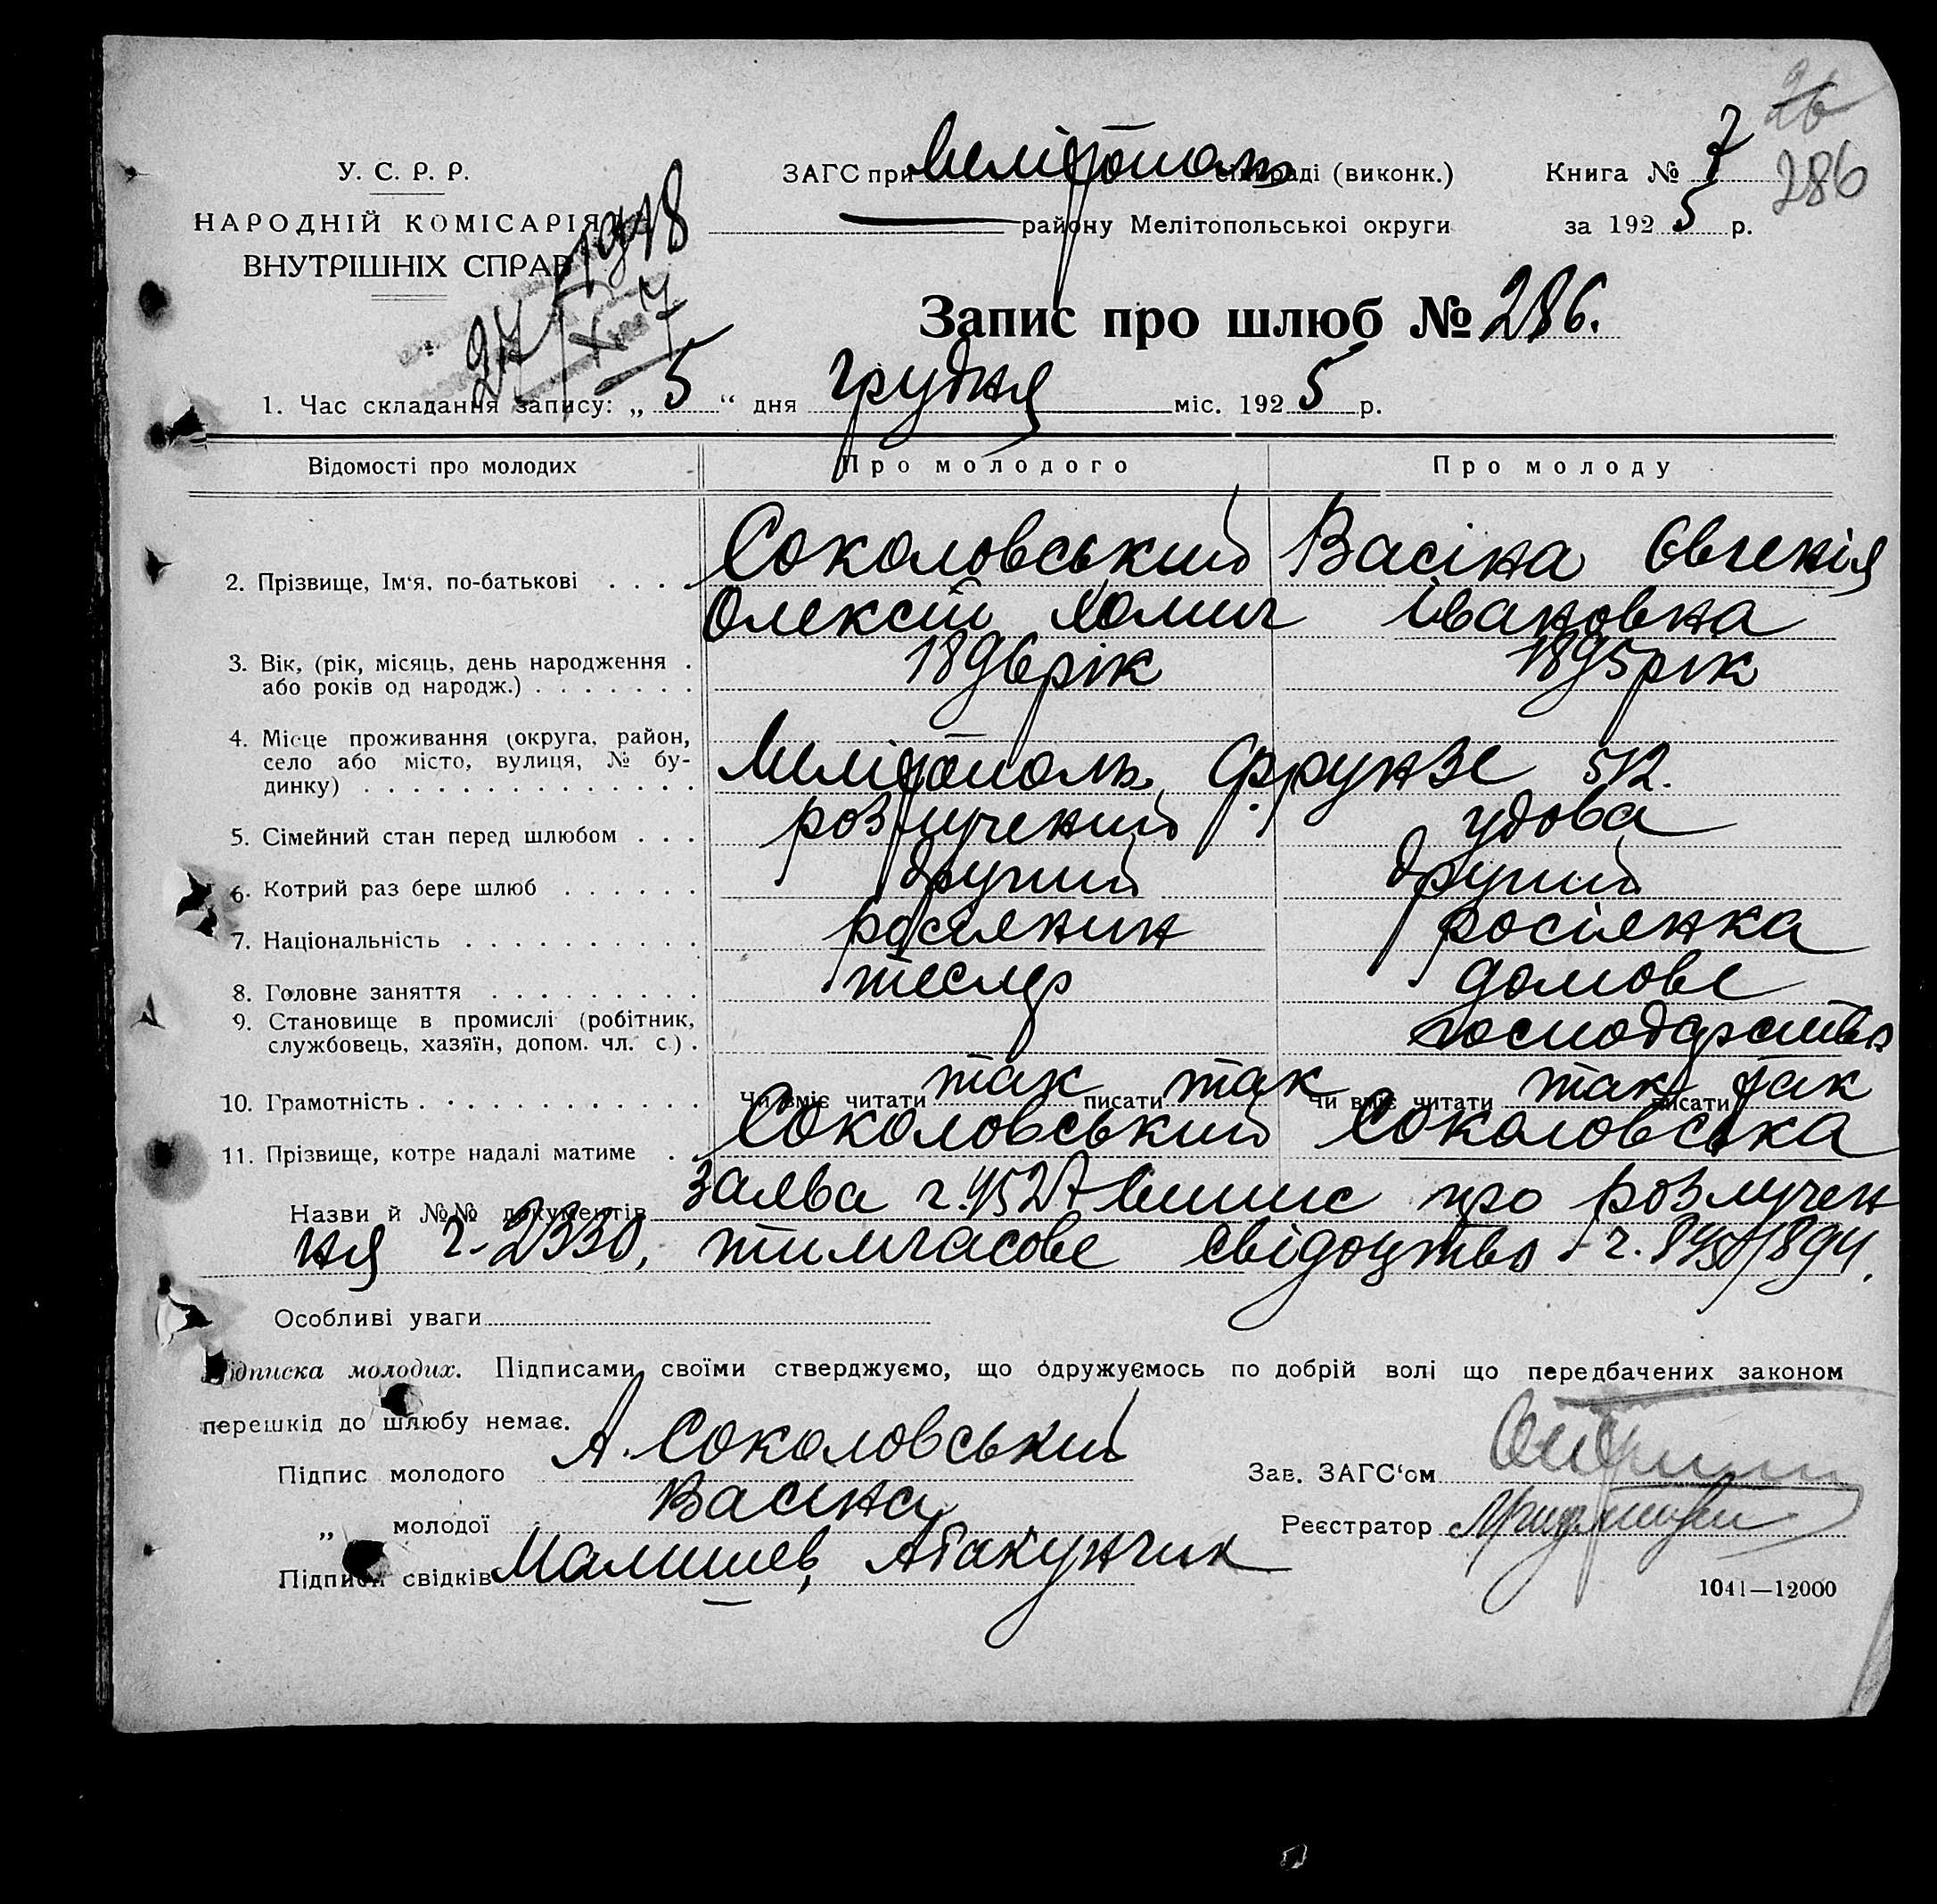 26
У. С. Р. Р.
ЗАГС при Мелітополь сільраді (виконк.)
Книга № 7
286
НАРОДНІЙ КОМІСАРІЯТ
району Мелітопольської округи
за 1925 р.
ВНУТРІШНІХ СПРАВ
Запис про шлюб № 286.
1. Час складання запису: „5“ дня грудня міс. 1925 р.
Відомості про молодих
Про молодого
Про молоду
2. Прізвище, Ім'я, по-батькові
Соколовський Васіна Євгенія
Олексій Хомич Івановна
3. Вік, (рік, місяць, день народження
або років од народж.)
1896 рік 1895 рік
4. Місце проживання (округа, район,
село або місто, вулиця, № бу-
динку)
Мелітополь, Фрунзе 52.
5. Сімейний стан перед шлюбом розлучений удова
6. Котрий раз бере шлюб другий другий
7. Національність росіянин росіянка
8. Головне заняття тесляр домове
9. Становище в промислі (робітник, господарство
службовець, хазяїн, допом. чл. с.)
10. Грамотність Чи вміє читати так писати так Чи вміє читати так писати так
11. Прізвище, котре надалі матиме Соколовський Соколовська
Назви й №№ документів заява ч. випис про розлучен
ня ч. 2330, тимчасове свідоцтво ч.
Особливі уваги
Підписка молодих. Підписами своїми стверджуємо, що одружуємось по добрій волі що передбачених законом
перешкід до шлюбу немає.
Підпис молодого А. Соколовський
Зав. ЗАГС'ом
„ молодої Васіна
Реєстратор
Підписи свідків Малишев, Абакунчик
1041—12000